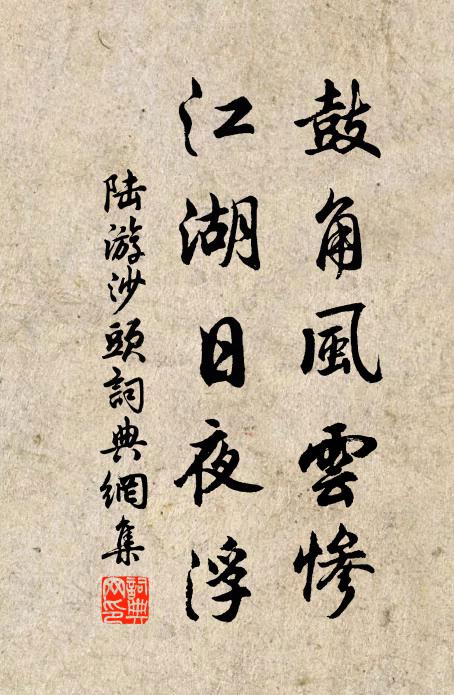 鼓角風雲慘
江湖日夜浮
陸游沙頭詞典網集
詞典網印